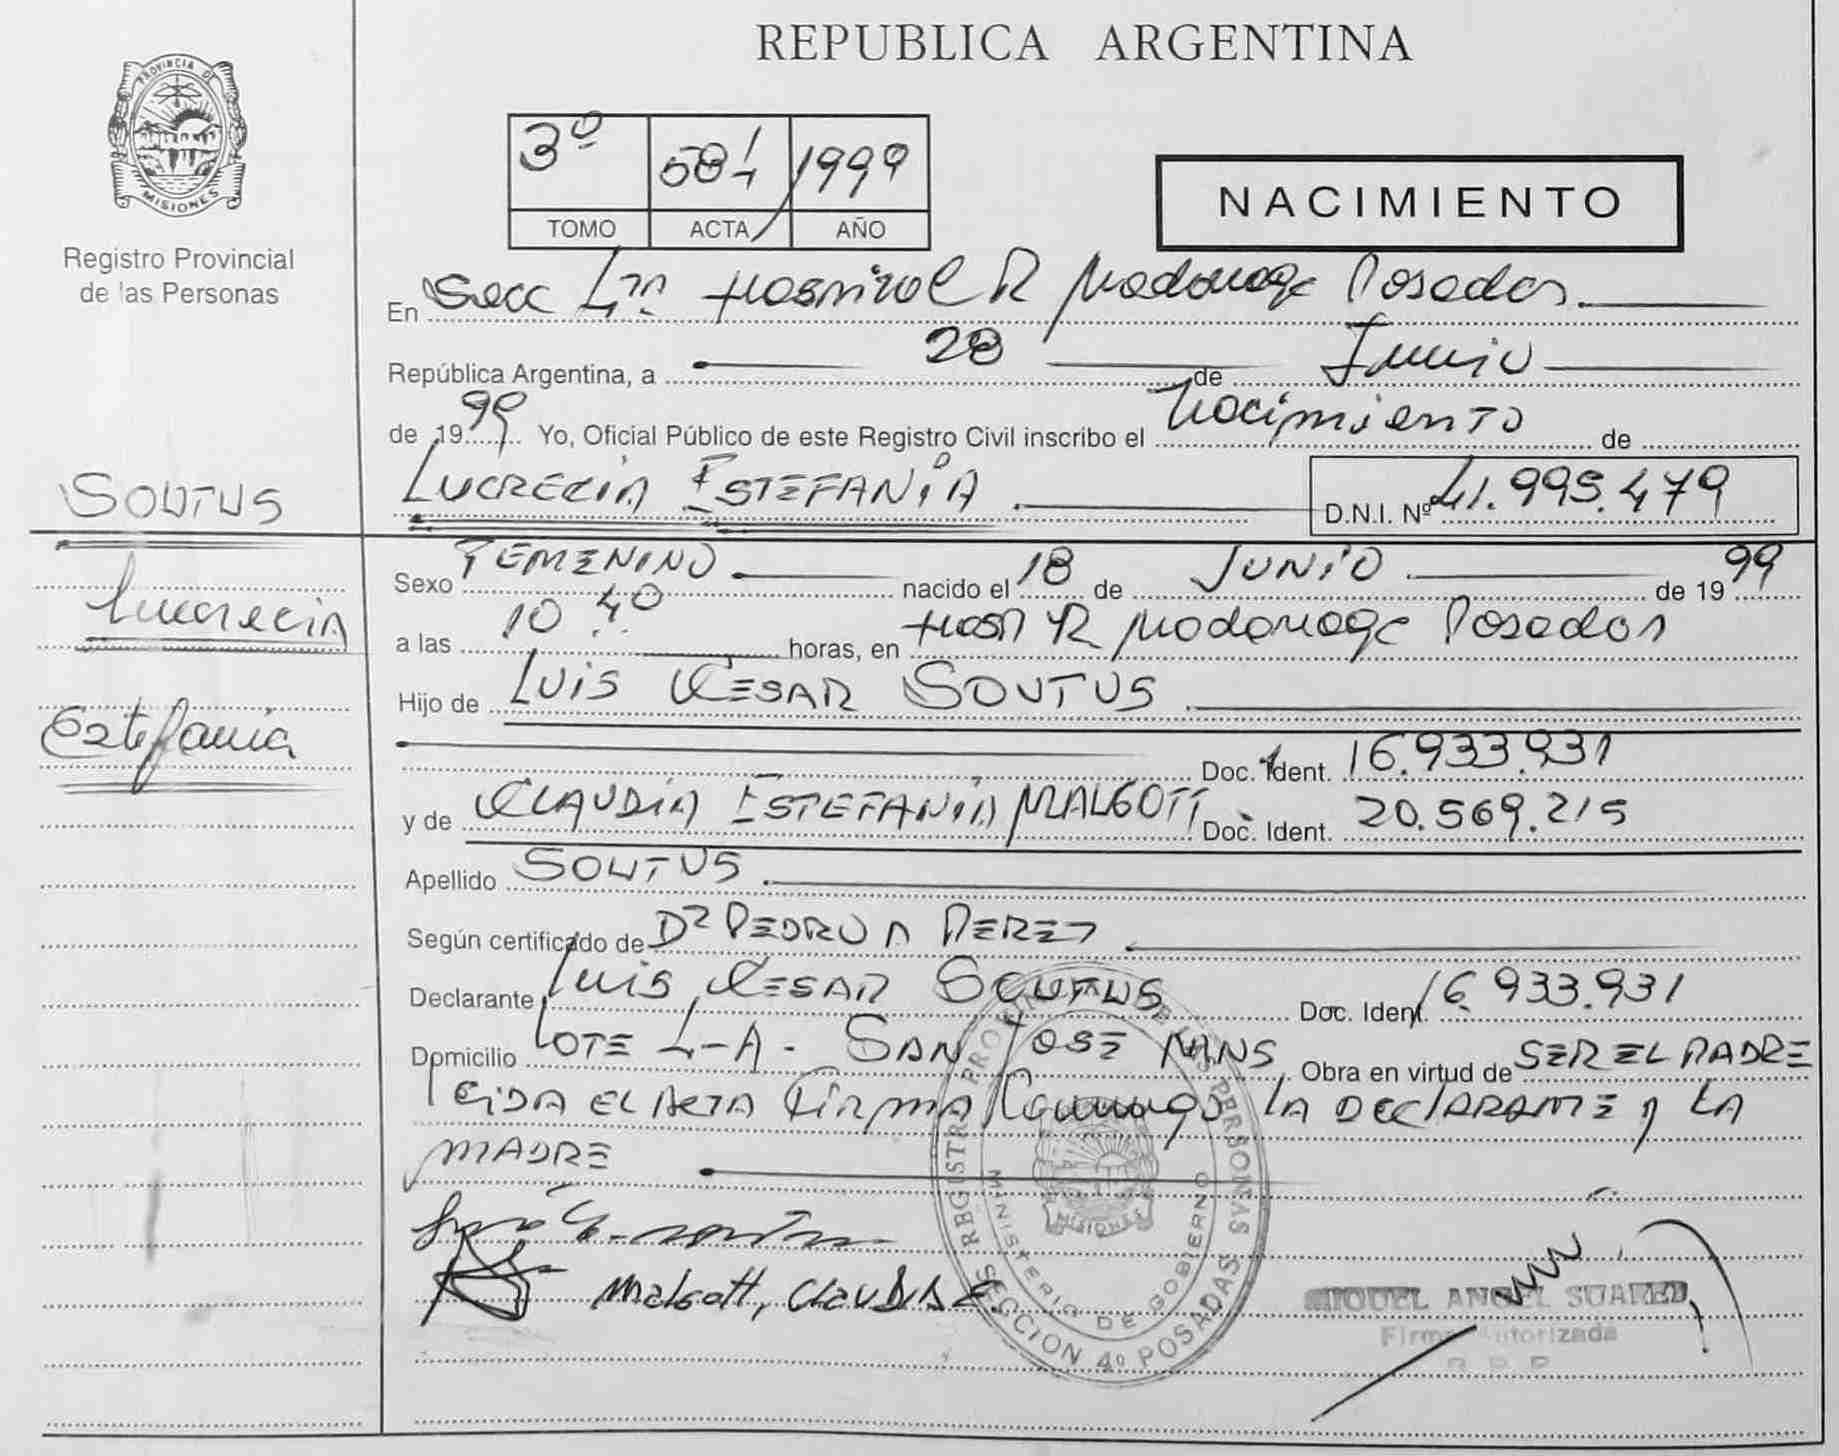 PROVINCIA DE
MISIONES
Registro Provincial
de las Personas
REPUBLICA ARGENTINA
3º 584 1999
TOMO ACTA AÑO
NACIMIENTO
En Secc 4ta Hospital R Madariaga Posadas
República Argentina, a 28 de Junio
de 1999 Yo, Oficial Público de este Registro Civil inscribo el Nacimiento de
LUCRECIA ESTEFANIA D.N.I. Nº 41.995.479
SOUTUS
Lucrecia
Estefania
Sexo FEMENINO nacido el 18 de JUNIO de 1999
a las 10 40 horas, en Hosp R Madariaga Posadas
Hijo de LUIS CESAR SOUTUS
Doc. Ident. 16.933.931
y de CLAUDIA ESTEFANIA MALGOTT Doc. Ident. 20.569.215
Apellido SOUTUS
Según certificado de Dr PEDRO A PEREZ
Declarante LUIS CESAR SOUTUS Doc. Ident. 16.933.931
Domicilio LOTE 4-A - SAN JOSE MNS Obra en virtud de SER EL PADRE
LEIDA EL ACTA FIRMA Conmigo LA DECLARANTE y LA
MADRE
Malgott, Claudia E.
REGISTRO PROVINCIAL DE LAS PERSONAS
MINISTERIO DE GOBIERNO
MISIONES
SECCION 4º POSADAS
MIGUEL ANGEL SUAREZ
Firma Autorizada
R. P. P.